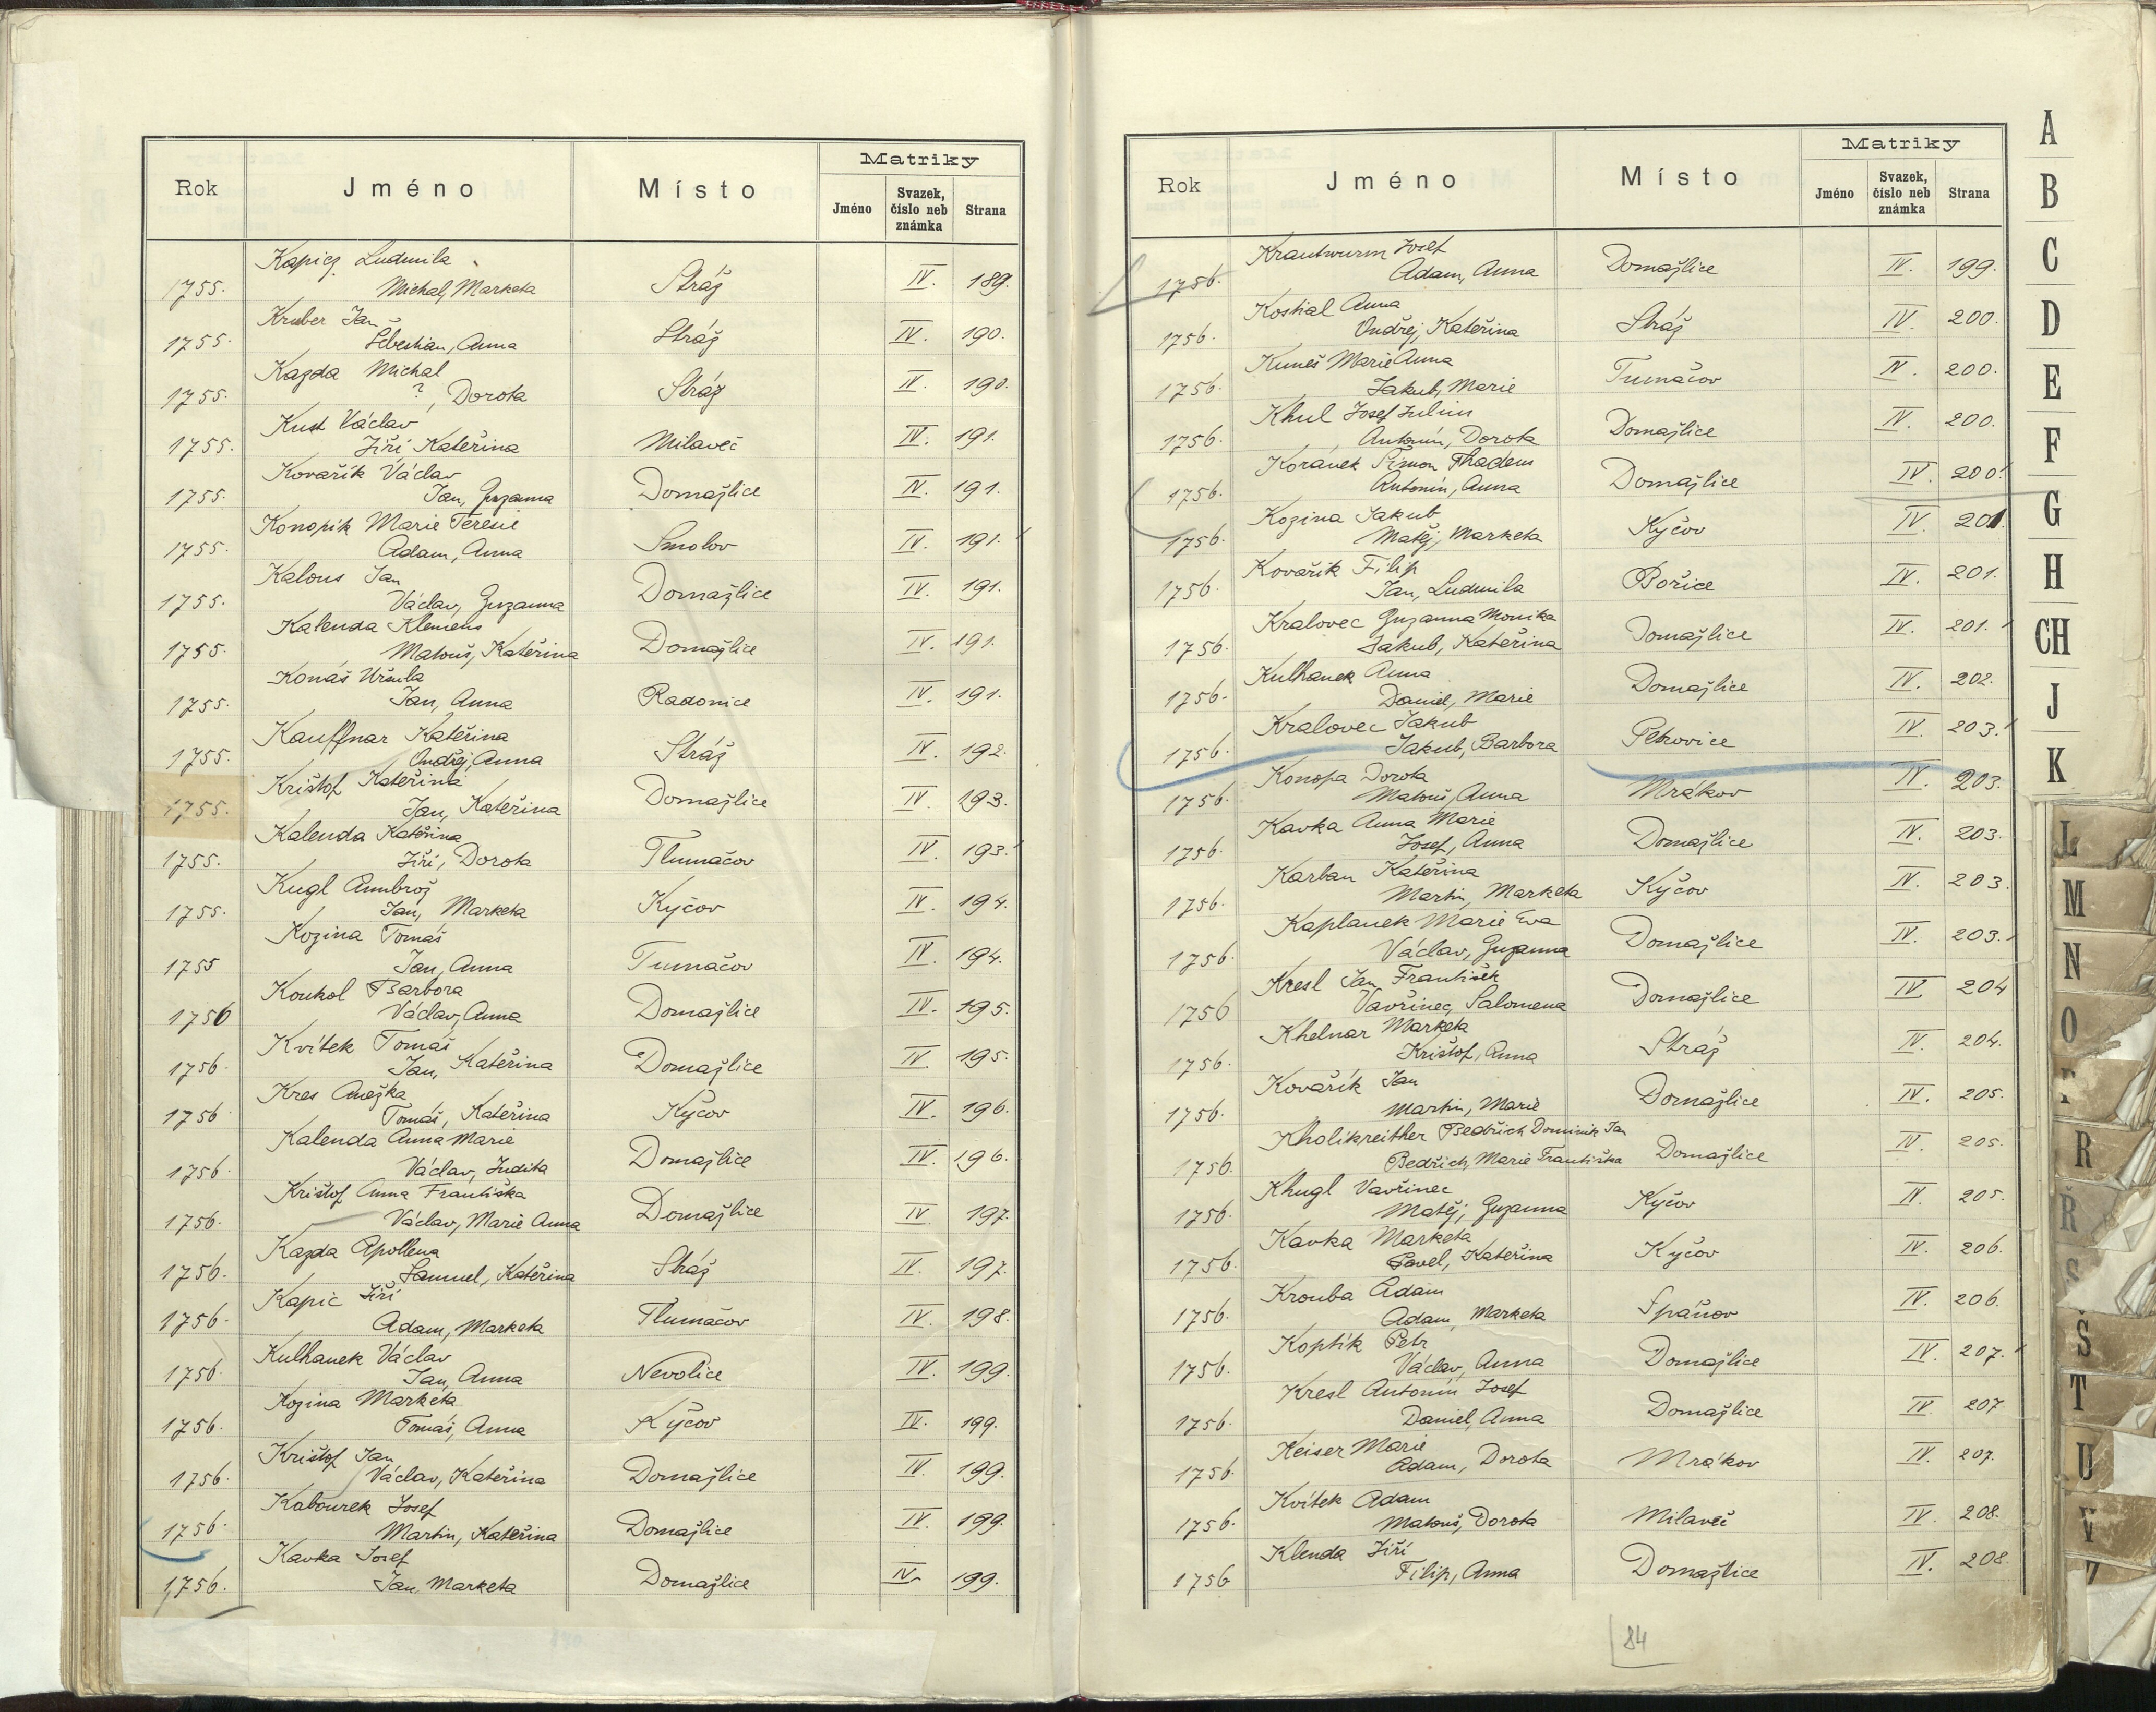 Matriky
Rok Jméno Místo Jméno Svazek, číslo neb známka Strana
Kapicz Ludmila
1755. Michal, Marketa Stráž IV. 189.
Kruber Jan
1755. Šebestian, Anna Stráž IV. 190.
Kazda Michal
1755. ?, Dorota Stráž IV. 190.
Kust Václav
1755. Jiří Kateřina Milaveč IV. 191.
Kovařík Václav
1755. Jan, Zuzanna Domažlice IV. 191.
Konopik Marie Teresie
1755. Adam, Anna Smolov IV. 191.
Kalous Jan
1755. Václav, Zuzanna Domažlice IV. 191.
Kalenda Klemens
1755. Matouš, Kateřina Domažlice IV. 191.
Konáš Uršula
1755. Jan, Anna Radonice IV. 191.
Kauffnar Kateřina
1755. Ondřej, Anna Stráž IV. 192.
Krištof Kateřina
1755. Jan, Kateřina Domažlice IV. 293.
Kalenda Kateřina
1755. Jiří, Dorota Tlumačov IV. 193.
Kugl Ambrož
1755. Jan, Marketa Kyčov IV. 194.
Kozina Tomáš
1755 Jan, Anna Tumačov IV. 194.
Koukol Barbora
1756 Václav, Anna Domažlice IV. 195.
Kvítek Tomáš
1756. Jan, Kateřina Domažlice IV. 195.
Kres Anežka
1756 Tomáš, Kateřina Kyčov IV. 196.
Kalenda Anna Marie
1756. Václav, Judita Domažlice IV. 196.
Krištof Anna Františka
1756. Václav, Marie Anna Domažlice IV. 197.
Kazda Apollena
1756. Samuel, Kateřina Stráž IV. 197.
Kapic Jiří
1756. Adam, Marketa Tlumačov IV. 198.
Kulhanek Václav
1756. Jan, Anna Nevolice IV. 199.
Kozina Marketa
1756. Tomáš, Anna Kyčov IV. 199.
Krištof Jan
1756. Václav, Kateřina Domažlice IV. 199.
Kabourek Josef
1756. Martin, Kateřina Domažlice IV. 199.
Kavka Josef
1756. Jan Marketa Domažlice IV. 199.
Matriky
Rok Jméno Místo Jméno Svazek, číslo neb známka Strana
Krautwurm Josef
1756. Adam, Anna Domažlice IV. 199.
Kostial Anna
1756. Ondřej, Kateřina Stráž IV. 200.
Kuneš Marie Anna
1756. Jakub, Marie Tumačov IV. 200.
Khul Josef Julius
1756. Antonín, Dorota Domažlice IV. 200.
Koránek Šimon Thadeus
1756. Antonín, Anna Domažlice IV. 200.
Kozina Jakub
1756. Matěj, Marketa Kyčov IV. 201.
Kovařik Filip
1756. Jan, Ludmila Bořice IV. 201.
Kralovec Zuzanna Monika
1756. Jakub, Kateřina Domažlice IV. 201.
Kulhanek Anna
1756. Daniel, Marie Domažlice IV. 202.
Kralovec Jakub
1756. Jakub, Barbora Petrovice IV. 203.
Konopa Dorota
1756. Matouš, Anna Mrákov IV. 203.
Kavka Anna Marie
1756. Josef, Anna Domažlice IV. 203.
Karban Kateřina
1756. Martin, Marketa Kyčov IV. 203.
Kaplanek Marie Eva
1756. Václav, Zuzanna Domažlice IV. 203.
Kresl Jan František
1756 Vavřinec, Salomena Domažlice IV 204
Khelnar Marketa
1756. Krištof, Anna Stráž IV. 204.
Kovařík Jan
1756. Martin, Marie Domažlice IV. 205.
Kholikreither Bedřich Dominik Jan
1756. Bedřich, Marie Františka Domažlice IV. 205.
Khugl Vavřinec
1756. Matěj, Zuzanna Kyčov IV. 205.
Kavka Marketa
1756. Pavel, Kateřina Kyčov IV. 206.
Krouba Adam
1756. Adam, Marketa Spáňov IV. 206.
Koptik Petr
1756. Václav, Anna Domažlice IV. 207.
Kresl Antonín Josef
1756. Daniel, Anna Domažlice IV. 207
Keiser Marie
1756. Adam, Dorota Mrákov IV. 207.
Kvítek Adam
1756. Matouš, Dorota Milaveč IV. 208.
Klenda Jiří
1756 Filip, Anna Domažlice IV. 208.
84
A
B
C
D
E
F
G
H
CH
J
K
L
M
N
O
R
Ř
S
Š
T
U
V